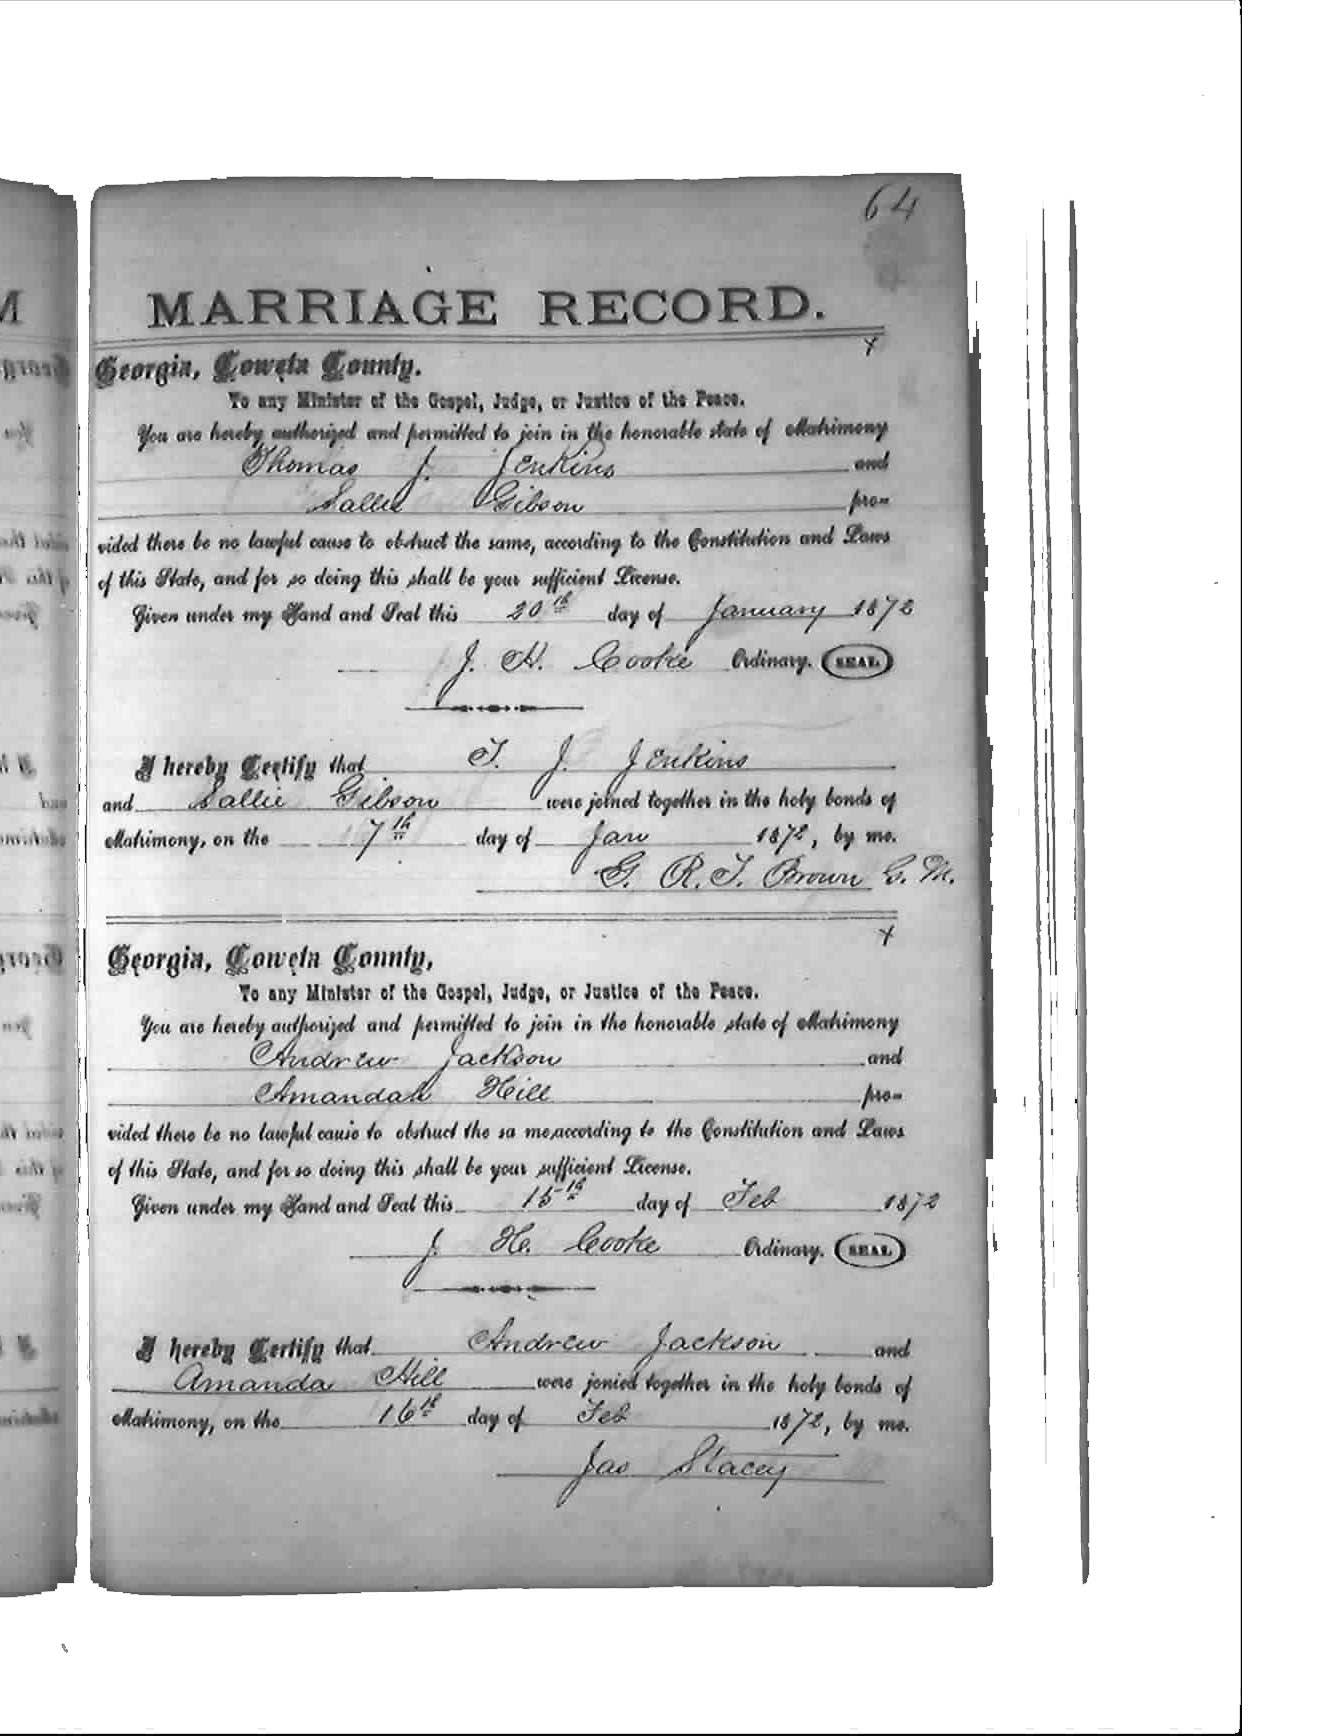 64
M
MARRIAGE RECORD.
x
Georgia, Coweta County.
To any Minister of the Gospel, Judge, or Justice of the Peace.
You are hereby authorized and permitted to join in the honorable state of Matrimony
Thomas J. Jenkins and
Sallie Gibson pro-
vided there be no lawful cause to obstruct the same, according to the Constitution and Laws
of this State, and for so doing this shall be your sufficient License.
Given under my Hand and Seal this 20th day of January 1872
J. H. Cooke Ordinary. SEAL
I hereby Certify that T. J. Jenkins
and Sallie Gibson were joined together in the holy bonds of
Matrimony, on the 7th day of Jan 1872, by me.
G. R. T. Brown G. M.
x
Georgia, Coweta County,
To any Minister of the Gospel, Judge, or Justice of the Peace.
You are hereby authorized and permitted to join in the honorable state of Matrimony
Andrew Jackson and
Amandah Hill pro-
vided there be no lawful cause to obstruct the sa me,according to the Constitution and Laws
of this State, and for so doing this shall be your sufficient License.
Given under my Hand and Seal this 15th day of Feb 1872
J. H. Cooke Ordinary. SEAL
I hereby Certify that Andrew Jackson and
Amanda Hill were jonied together in the holy bonds of
Matrimony, on the 16th day of Feb 1872, by me.
Jas Stacey